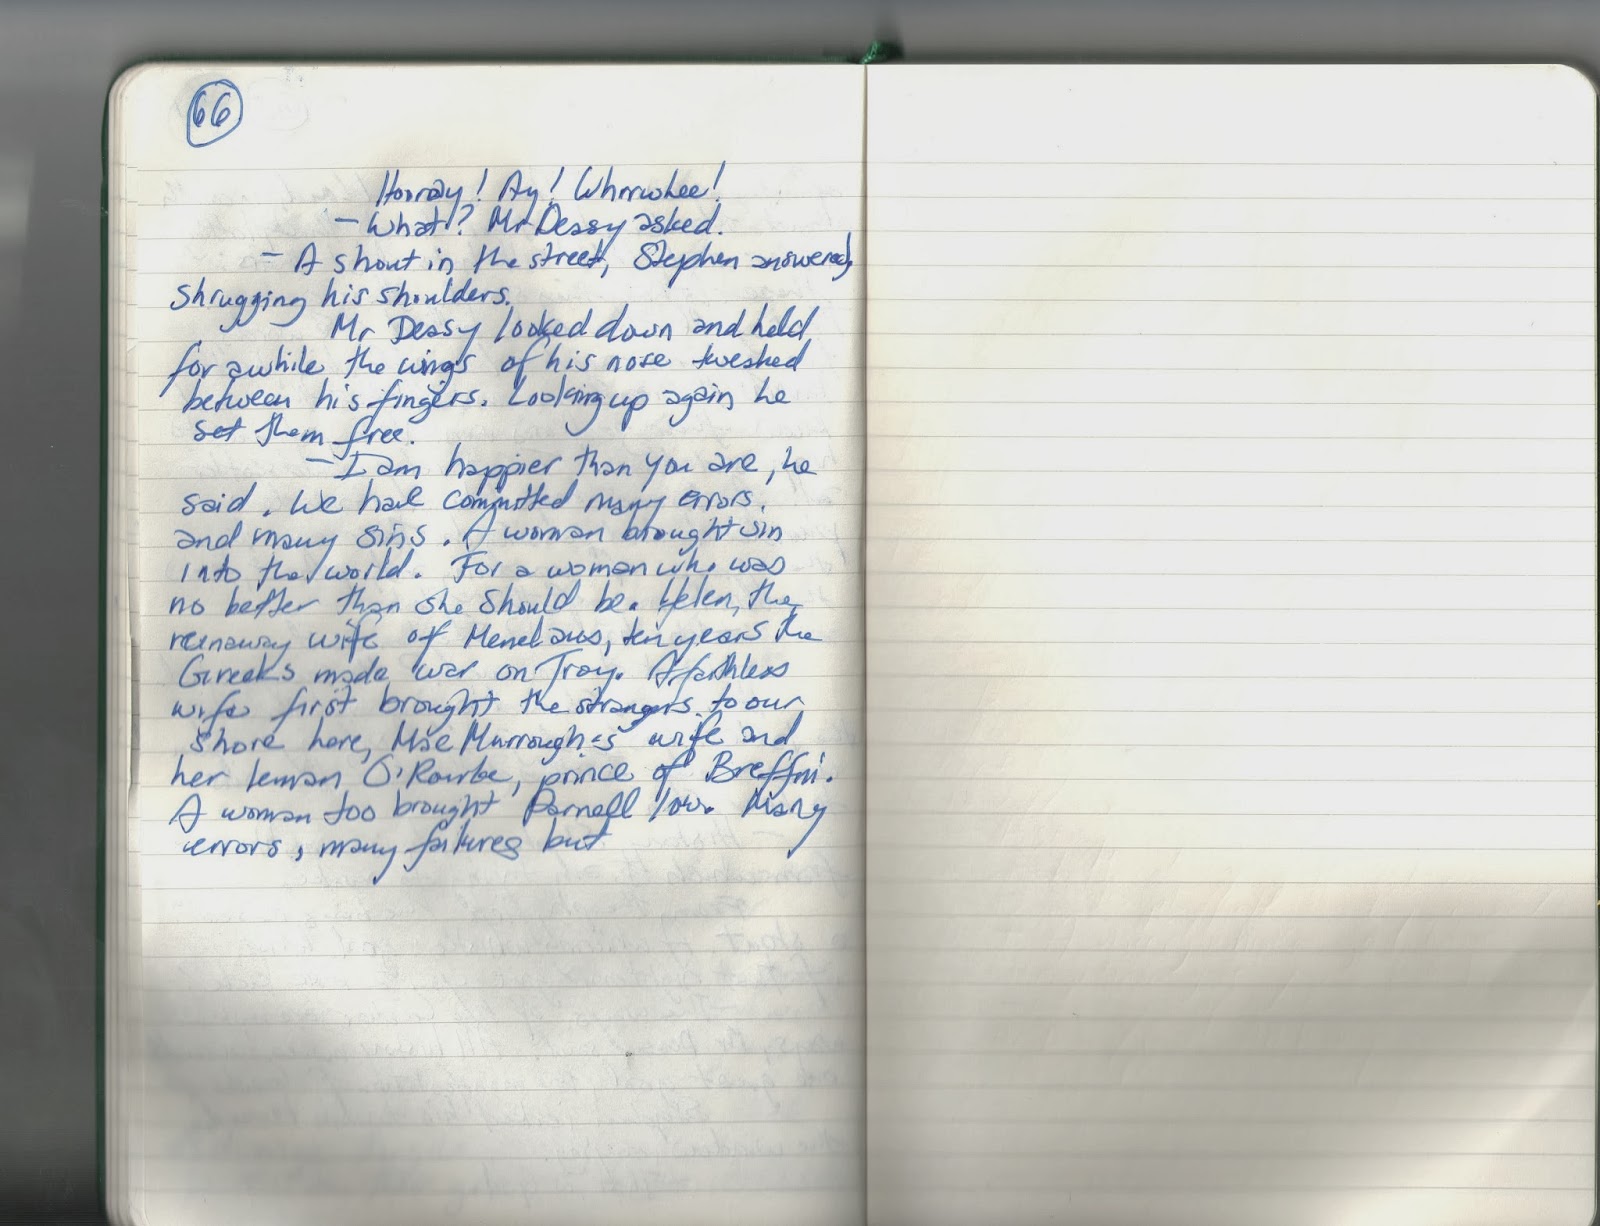 66
Hooray! Ay! Whrrwhee!
– What? Mr Deasy asked.
– A shout in the street, Stephen answered,
shrugging his shoulders.
Mr Deasy looked down and held
for awhile the wings of his nose tweaked
between his fingers. Looking up again he
set them free.
– I am happier than you are, he
said. We have committed many errors.
and many sins. A woman brought sin
into the world. For a woman who was
no better than she should be. Helen, the
runaway wife of Menelaus, ten years the
Greeks made war on Troy. A faithless
wife first brought the strangers to our
shore here, MacMurrough's wife and
her leman O'Rourke, prince of Breffni.
A woman too brought Parnell low. Many
errors, many failures but